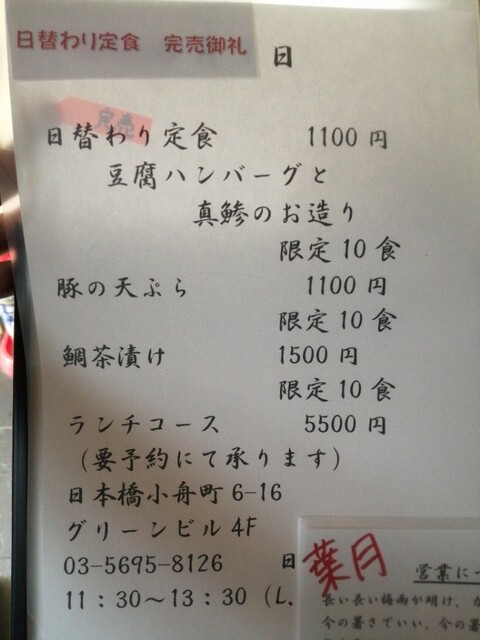 日替わり定食 完売御礼
日
完売
日替わり定食 1100円
豆腐ハンバーグと
真鯵のお造り
限定10食
豚の天ぷら 1100円
限定10食
鯛茶漬け 1500円
限定10食
ランチコース 5500円
(要予約にて承ります)
日本橋小舟町6-16
グリーンビル4F
03-5695-8126 日
11:30～13:30 (L.
葉月
営業に
長い長い梅雨が明け、
今の暑さでいい、今の暑